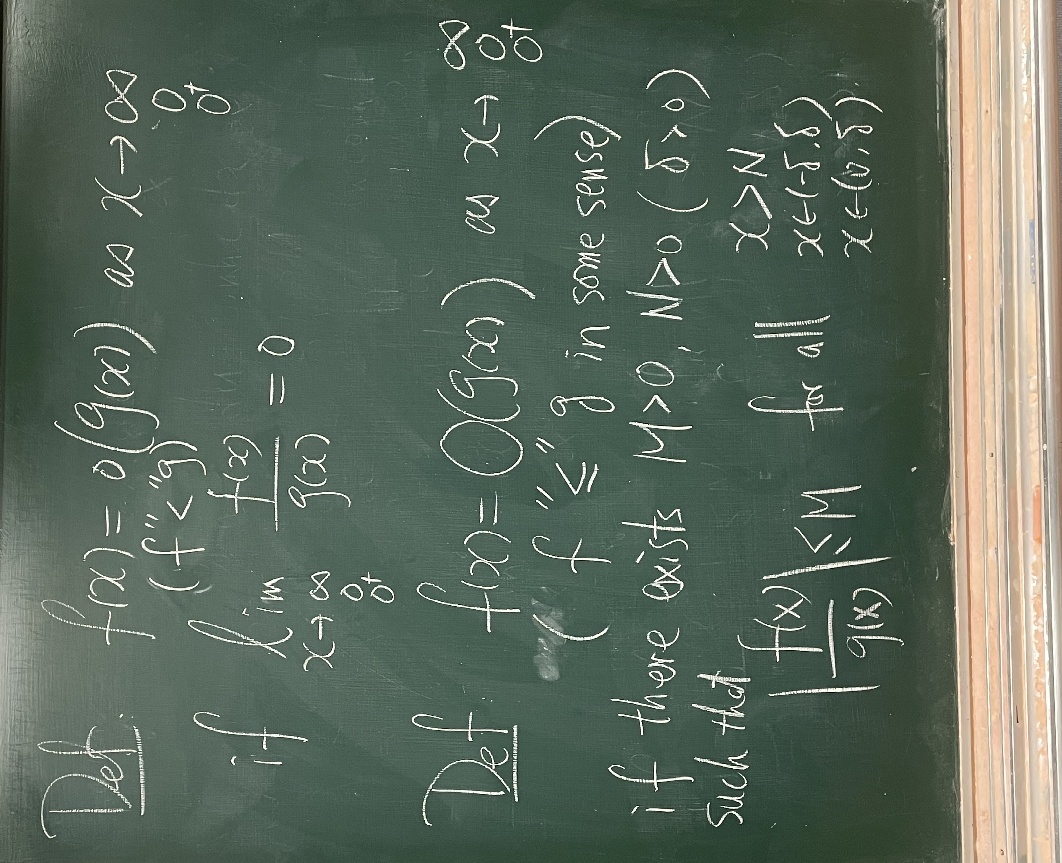 Def. f(x) = o(g(x)) as x → ∞
0
0⁺
(f "<" g)
if lim f(x)/g(x) = 0
x → ∞
0
0⁺
Def f(x) = O(g(x)) as x → ∞
0
0⁺
(f "≤" g in some sense)
if there exists M>0, N>0 (δ>0)
such that
|f(x)/g(x)| ≤ M for all x>N
x∈(-δ,δ)
x∈(0,δ).